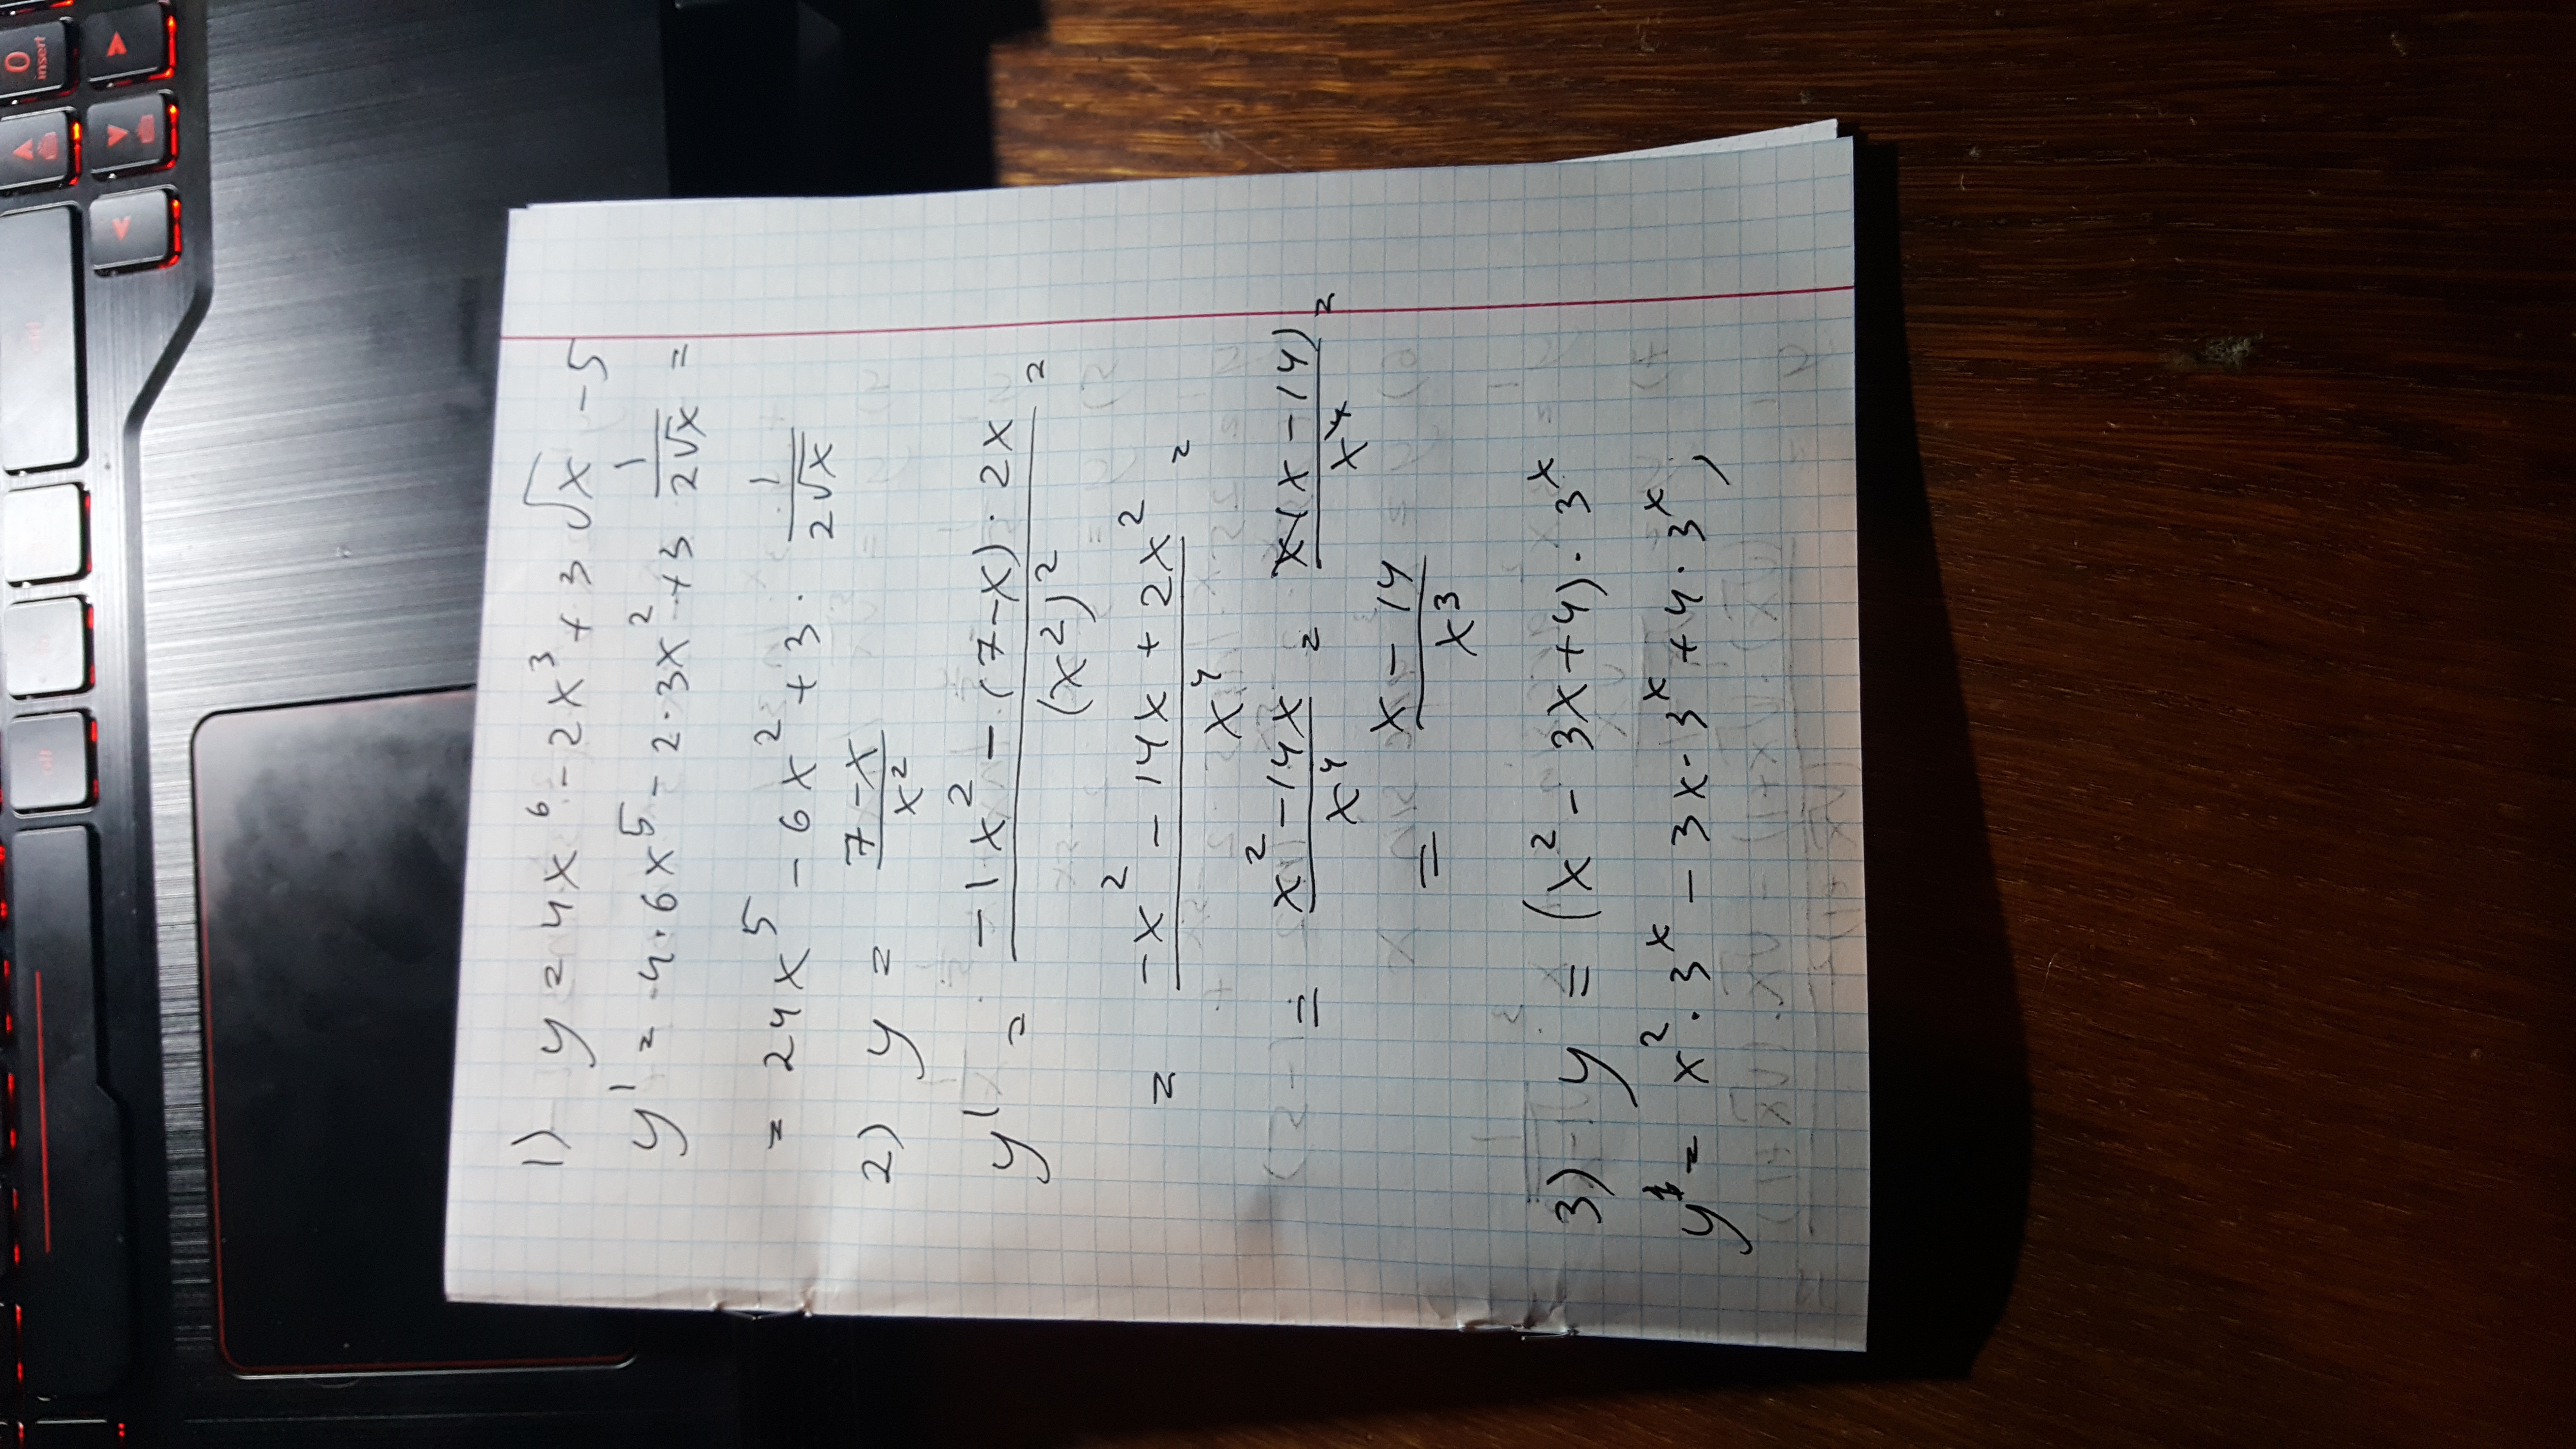 1) y = 4x⁶ - 2x³ + 3√x - 5
y' = 4·6x⁵ - 2·3x² + 3 1/(2√x) =
= 24x⁵ - 6x² + 3 · 1/(2√x)
2) y = (7-x)/x²
y' = (-1x² - (7-x)·2x)/(x²)² =
= (-x² - 14x + 2x²)/x⁴ =
= (x² - 14x)/x⁴ = x(x - 14)/x⁴ =
= (x - 14)/x³
3) y = (x² - 3x + 4)·3ˣ
y = x²·3ˣ - 3x·3ˣ + 4·3ˣ,
0
insert